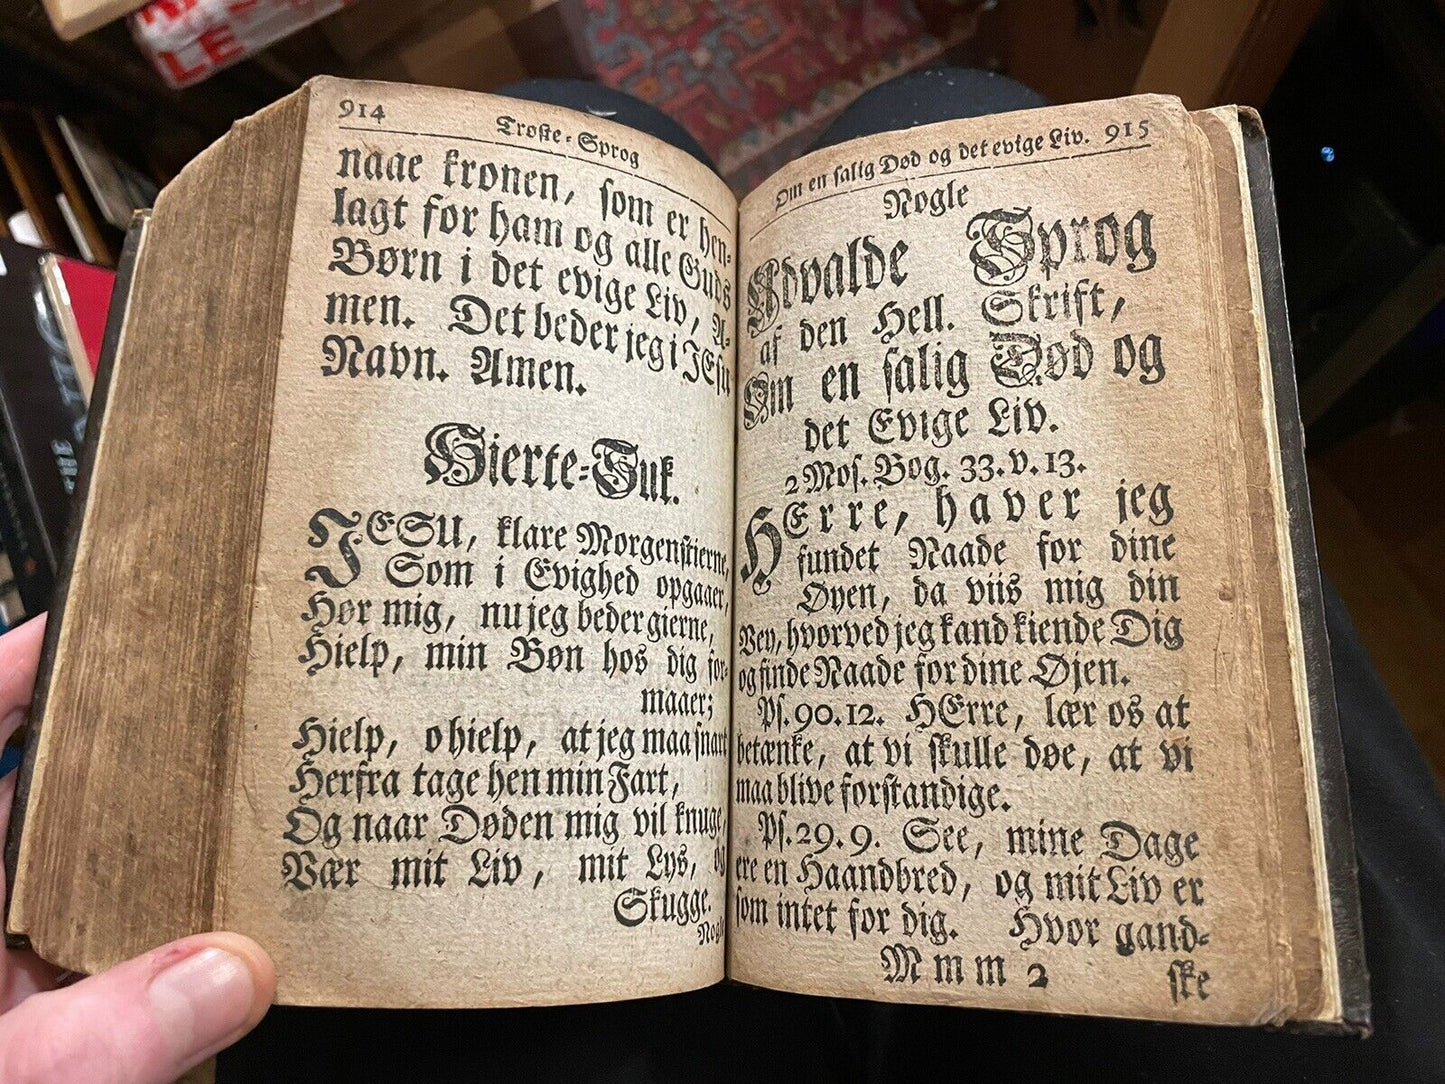 LE
914
Troste-Sprog
naae kronen, som er hen-
lagt for ham og alle Guds
Børn i det evige Liv, A-
men. Det beder jeg i JEsu
Navn. Amen.
Hierte-Suk.
JESU, klare Morgenstierne,
Som i Evighed opgaaer,
Hør mig, nu jeg beder gierne,
Hielp, min Bøn hos dig for-
maaer;
Hielp, o hielp, at jeg maa snart
Herfra tage hen min Fart,
Og naar Døden mig vil knuge,
Vær mit Liv, mit Lys, og
Skugge.
Nogle
Om en salig Død og det evige Liv. 915
Nogle
Udvalde Sprog
af den Hell. Skrift,
Om en salig Død og
det Evige Liv.
2 Mos. Bog. 33. v. 13.
HErre, haver jeg
fundet Naade for dine
Øyen, da viis mig din
Vey, hvorved jeg kand kiende Dig
og finde Naade for dine Øjen.
Ps. 90. 12. HErre, lær os at
betænke, at vi skulle døe, at vi
maa blive forstandige.
Ps. 29. 9. See, mine Dage
ere en Haandbred, og mit Liv er
som intet for dig. Hvor gand-
Mmm 2
ske